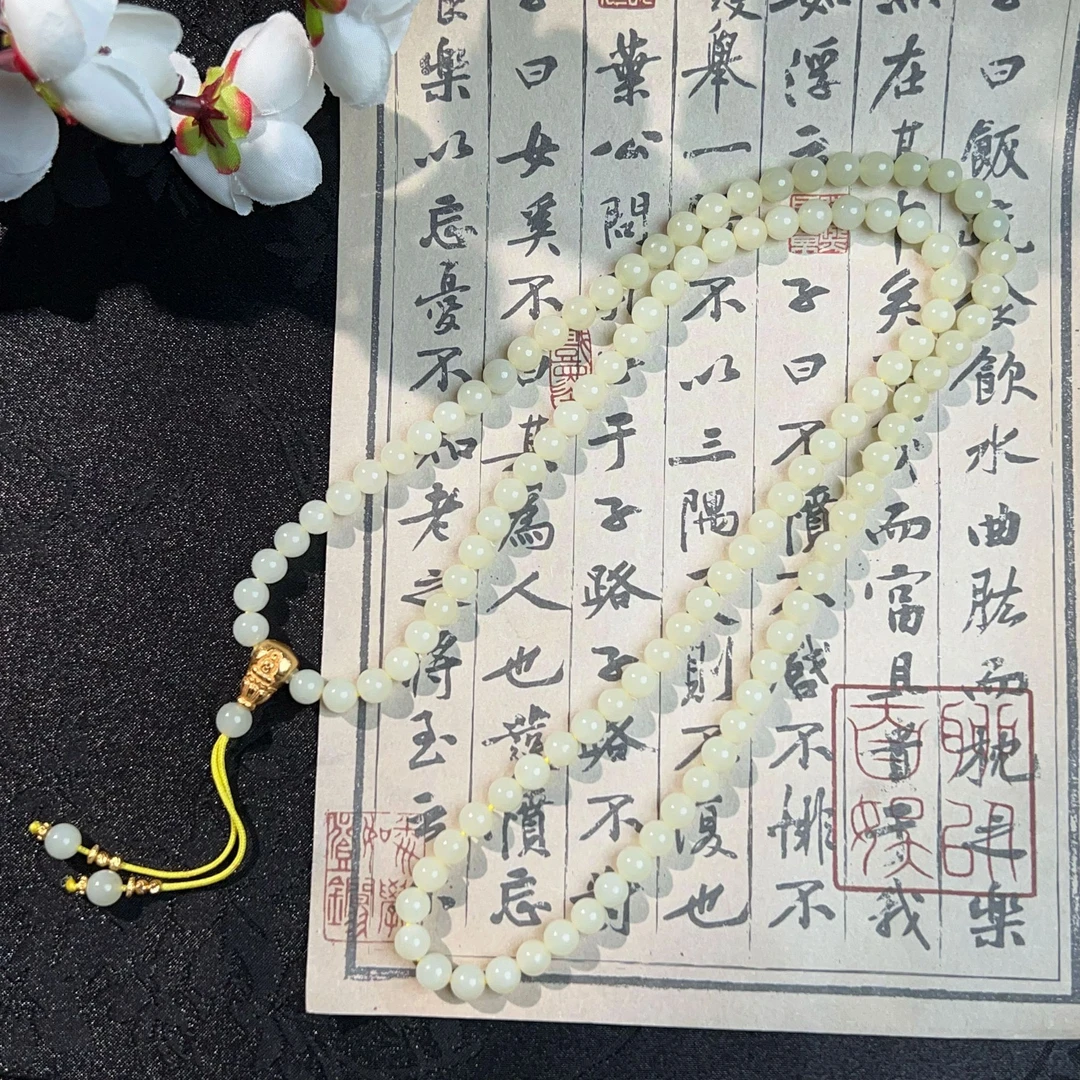 曰飯疏食飲水曲肱而枕之樂
在其中矣而富且貴我
如浮云子曰不憤不啟不悱不
舉一不以三隅則不復也
葉公問于子路子路不對
曰女奚不曰其為人也發憤忘
樂以忘憂不知老之將至云